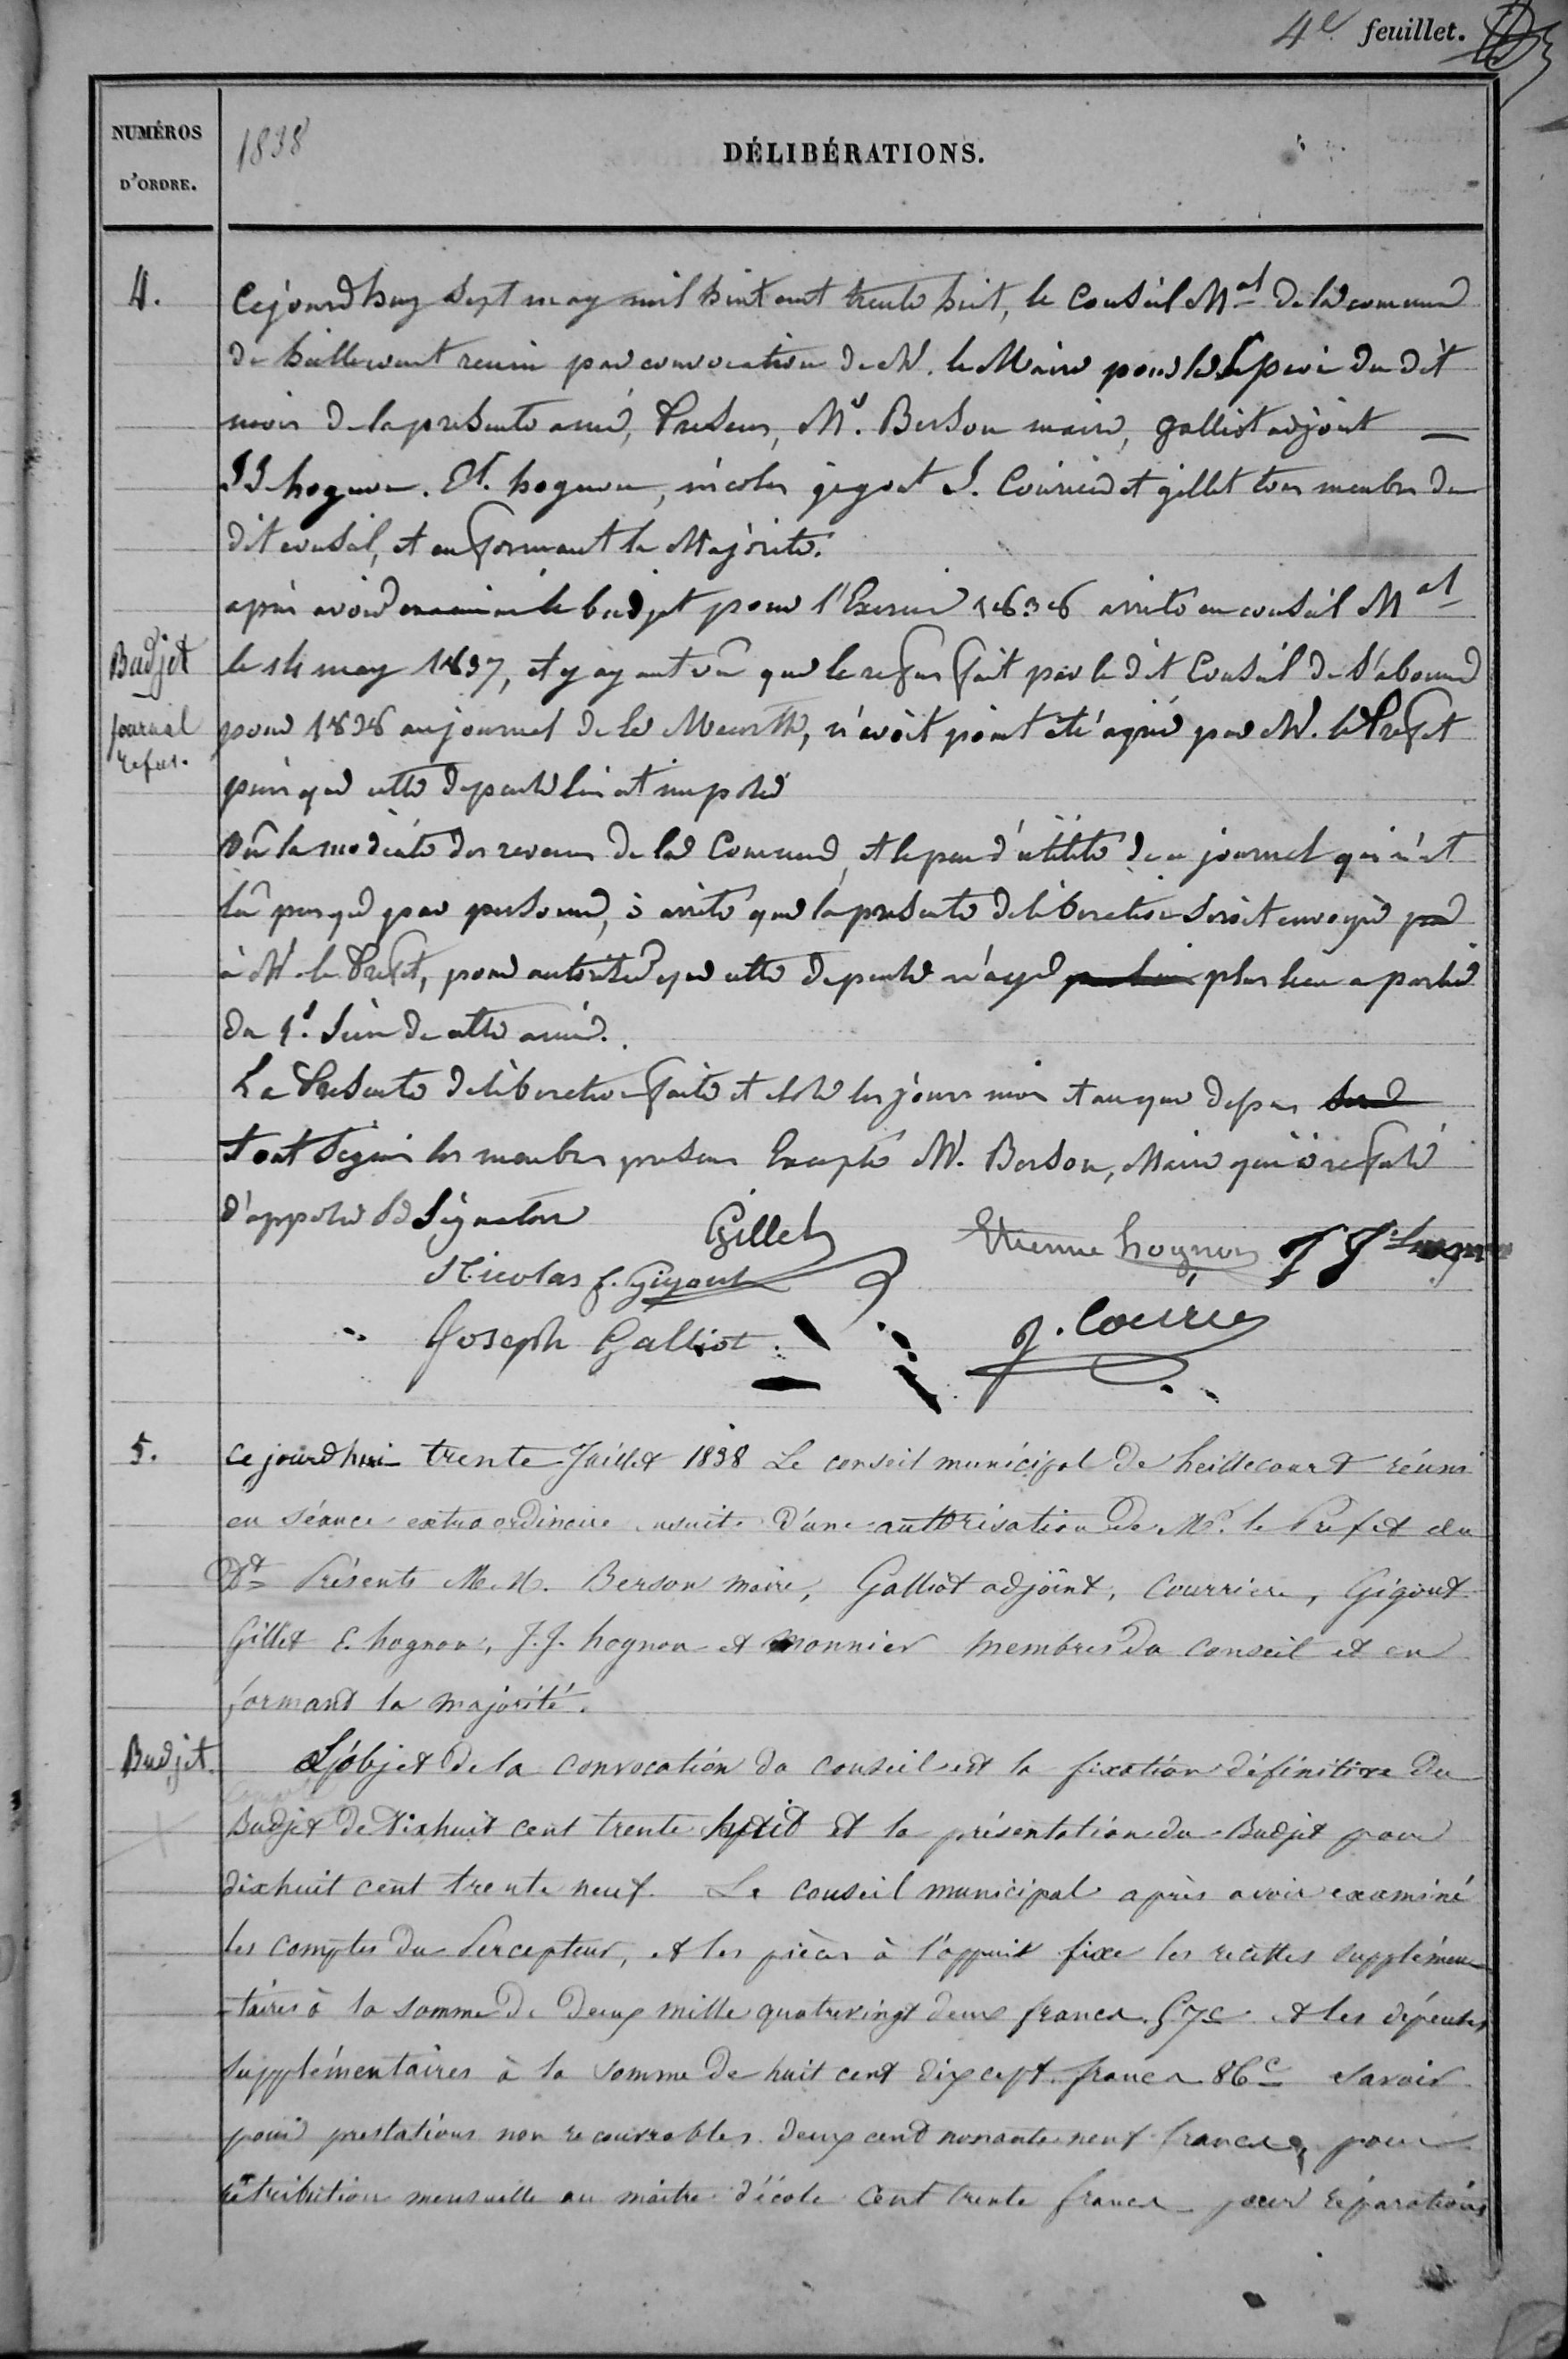 4e feuillet.
NUMÉROS
D'ORDRE.
1838
DÉLIBÉRATIONS.
4.
Cejourdhuy sept may mil huit cent trente huit, le Conseil Mal de la commune
de heillecourt reuni par convocation de M. le Maire pour la du dit
mois de la presente année, Presens, Mr. Berson maire, galliot adjoint
JJ hognon. Et. hognon, nicolas gigout J. Courier et gillet tous membres du
dit conseil, et en formant la Majorité.
après avoir examiné le budjet pour l'Exercice 1838 arrêté en conseil Mal
Budjet
journal
refus.
le 14 may 1837, et y ayant vû que le refus fait par le dit Conseil de s'abonner
pour 1838 au journal de la Meurthe, n'avoit point été agréé par M. le Prefet
puis que cette depense lui est imposée
Vû la modicité des revenus de la Commune, et le peu d'utilité de ce journal qui n'est
lû presque par personne, à arrêté que la presente deliberation seroit envoyée par
à M. le Prefet, pour autoriser que cette depense n'aye plus lieu a partir
du 1r. Juin de cette année.
La Presente deliberation faite et les jours mois et an que dessus
Tout Signé les membres presens Excepté M. Berson, Maire qui à refusé
d'apposer sa Signature
Gillet
Etienne hognon
JJ hognon
Nicolas f. Gigout
Joseph Galliot
J. Courier
5.
Cejourdhui trente Juillet 1838 Le conseil municipal de heillecourt réuni
en séance extraordinaire ensuite d'une authorisation de Mr. le Prefet du
Dt Présents M.M. Berson maire, Galliot adjoint, Courriere, Gigout
Gillet E. hognon, J.J. hognon et Monnier membres du Conseil et en
formant la majorité.
Budjet.
L'objet de la convocation du conseil est la fixation définitive du
Budjet de dixhuit cent trente huit et la présentation du Budjet pour
dixhuit cent trente neuf. Le conseil municipal après avoir examiné
les comptes du Percepteur, et les pièces à l'appuit fixe les recettes supplémen
-taires à la somme de deux mille quatrevingt deux francs 57c et les dépenses
supplémentaires à la somme de huit cent dix cept francs 86c savoir
pour prestations non recouvrables deux cent nonante neuf francs, pour
rétribution mensuelle au maitre d'école cent trente francs pour réparations